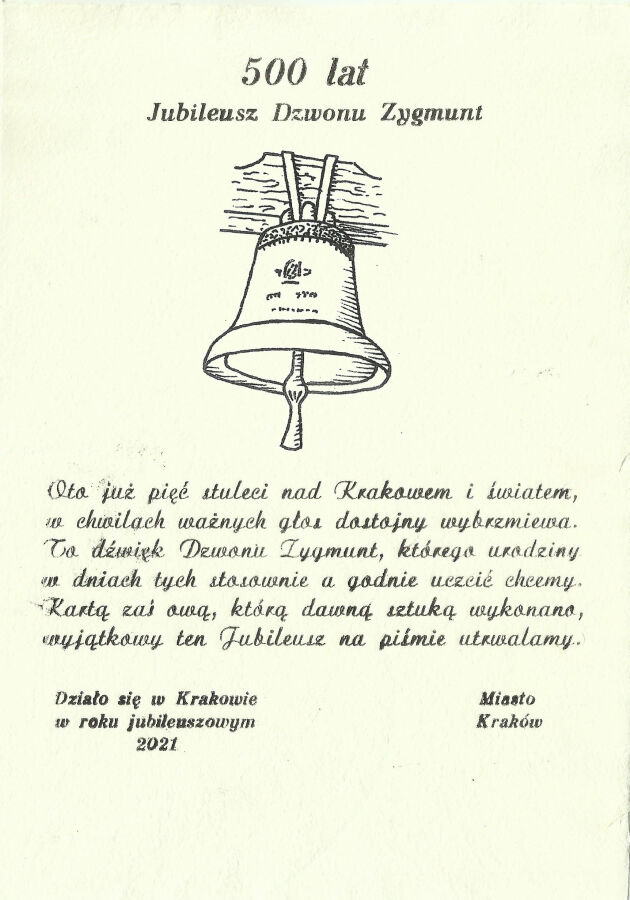 500 lat
Jubileusz Dzwonu Zygmunt
Oto już pięć stuleci nad Krakowem i światem,
w chwilach ważnych głos dostojny wybrzmiewa.
To dźwięk Dzwonu Zygmunt, którego urodziny
w dniach tych stosownie a godnie uczcić chcemy.
Kartą zaś ową, którą dawną sztuką wykonano,
wyjątkowy ten Jubileusz na piśmie utrwalamy.
Działo się w Krakowie
w roku jubileuszowym
2021
Miasto
Kraków